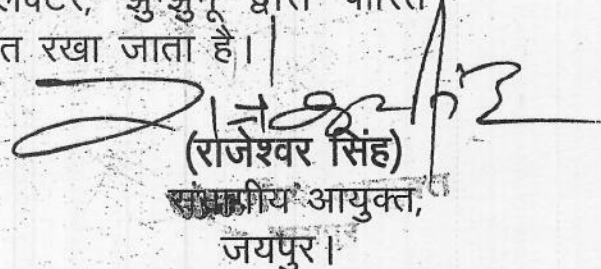 लेक्टर, झुन्झुनू द्वारा पारित
त रखा जाता है।
(राजेश्वर सिंह)
संभागीय आयुक्त,
जयपुर।